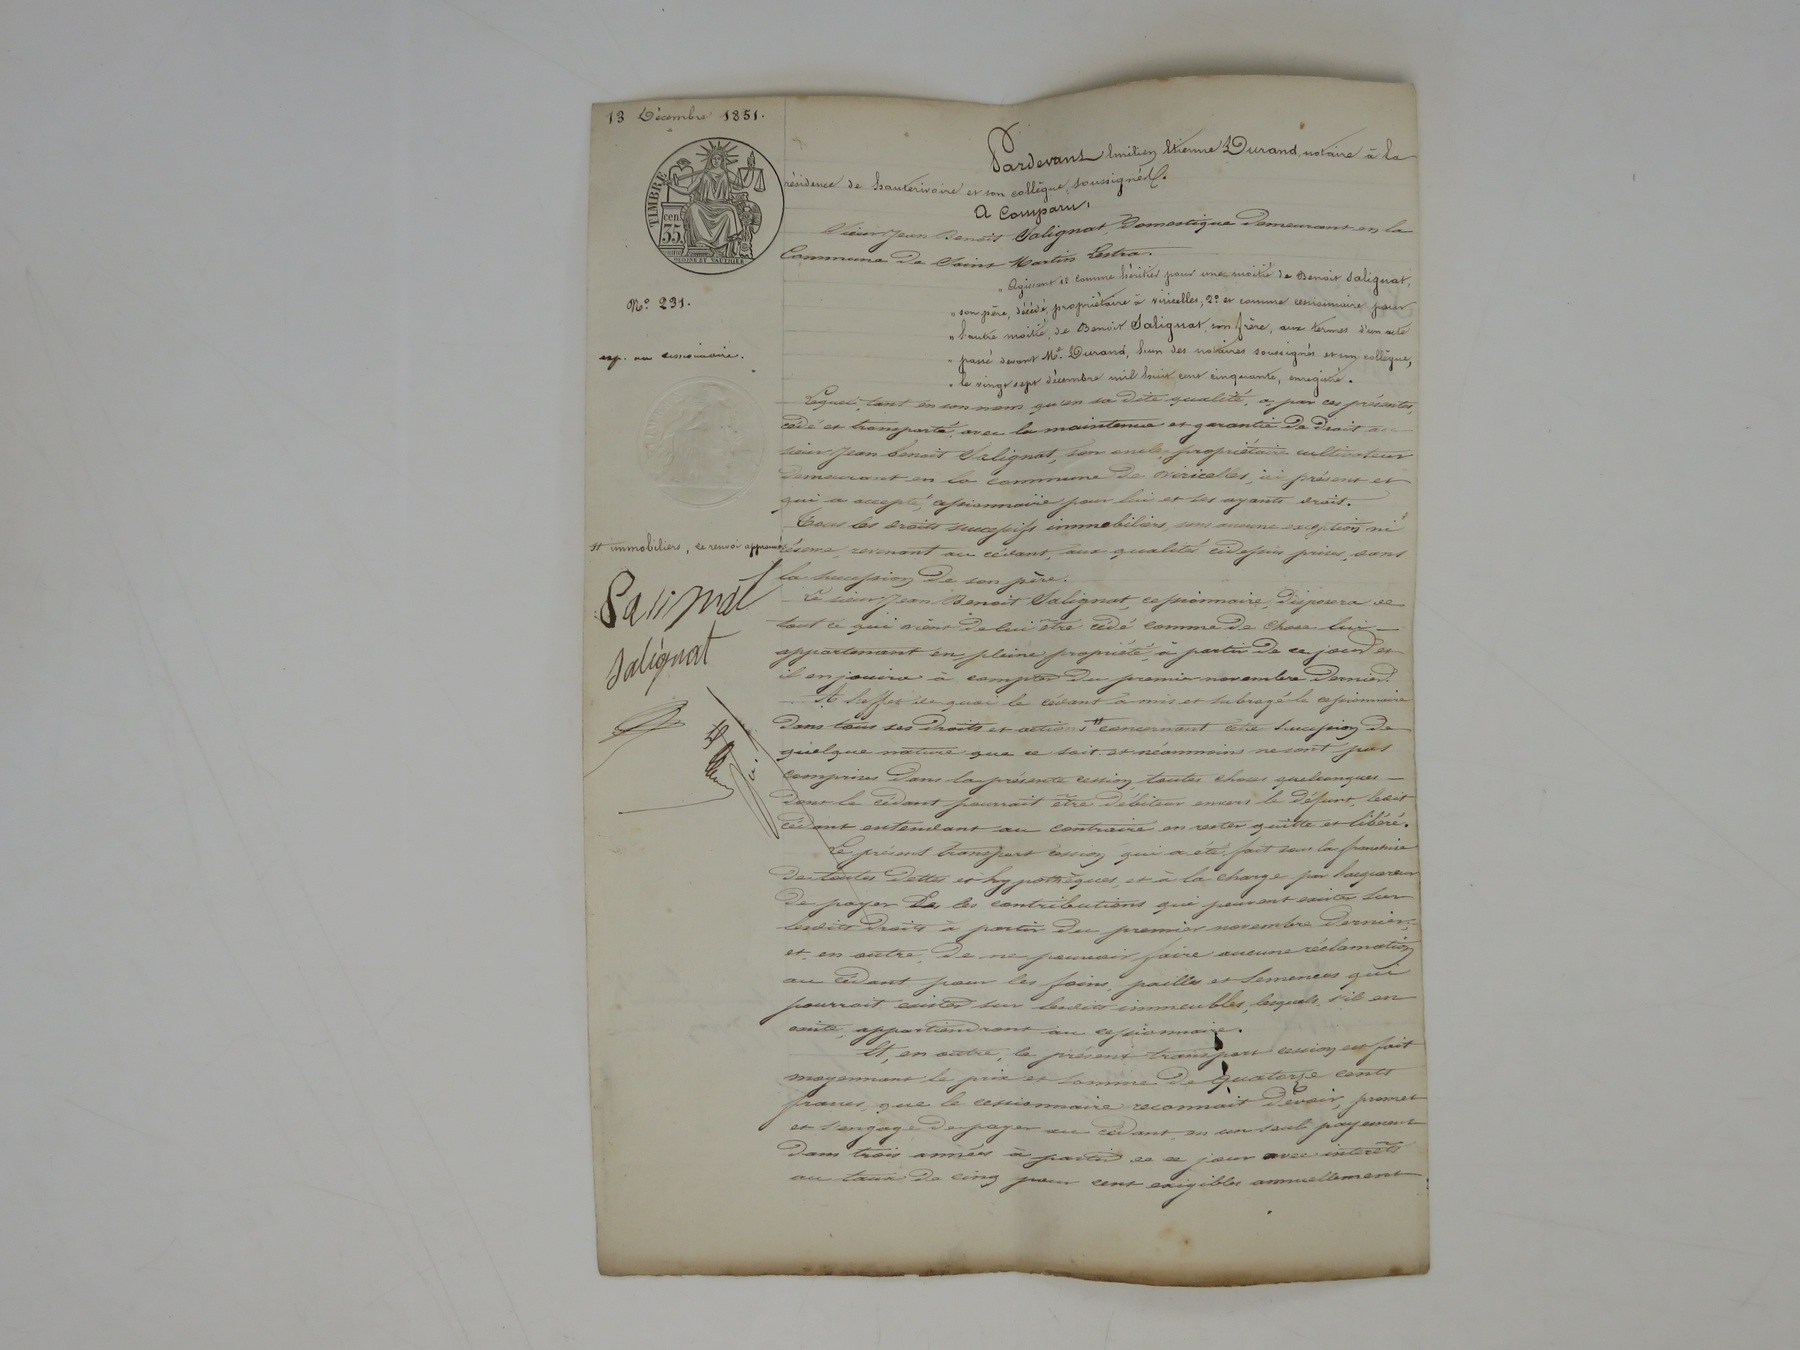 13 Décembre 1851.
TIMBRE
cen
35
N° 231.
exp. au cessionnaire.
Pardevant Emilien Etienne Durand, notaire à la
résidence de hauterivoire et son collègue, soussignés.
A Comparu,
Sieur Jean Benoit Salignat, Domestique Demeurant en la
Commune De Saint Martin Lestra.
„ Agissant 1° comme héritier pour une moitié de Benoit Salignat,
„ son père, décédé, propriétaire à viricelles; 2° et comme cessionnaire pour
„ l'autre moitié, de Benoit Salignat, son frère, aux termes d'un acte
„ passé devant Me. Durand, l'un des notaires soussignés et son collègue,
„ le vingt sept décembre mil huit cent cinquante, enregistré.
Lequel, tant en son nom qu'en sa dite qualité, a, par ces présentes,
cédé et transporté, avec la maintenue et garantie De Droit au
sieur Jean Benoit Salignat, son oncle, propriétaire cultivateur
Demeurant en la commune De Viricelles, ici présent et
qui a accepté, cessionnaire pour lui et ses ayants droit.
Tous les droits successifs immobiliers, sans aucune exception ni
réserve, revenant au cédant, aux qualités cidessus prises, dans
la succession De son père.
Le sieur Jean Benoit Salignat, cessionnaire, disposera de
tout ce qui vient De lui être cédé comme De chose lui
appartenant en pleine propriété, à partir De ce jour et
il en jouira à compter Du premier novembre Dernier.
A l'effet de quoi le cédant a mis et subrogé le cessionnaire
Dans tous ses Droits et actions # concernant cette succession De
quelque nature que ce soit et néanmoins ne sont pas
comprises Dans la présente cession toutes choses quelconques
Dont le cédant pourrait être Débiteur envers le Défunt, ledit
cédant entendant au contraire en rester quitte et libéré.
Le présent transport cession qui a été fait sous la franchise
De toutes Dettes et hypothèques, et à la charge par l'acquéreur
De payer les contributions qui peuvent exister sur
lesdits Droits à partir Du premier novembre Dernier;
et, en outre, De ne pouvoir faire aucune réclamation
au cédant pour les foins, pailles et semences qui
pourrait exister sur lesdits immeubles, lesquels, s'il en
existe, appartiendront au cessionnaire.
Et, en outre, le présent transport cession est fait
moyennant le prix et somme De quatorze cents
francs, que le cessionnaire reconnait Devoir, promet
et s'engage De payer au cédant en un seul payement
Dans trois années à partir de ce jour avec intérêts
au taux De cinq pour cent exigibles annuellement
# immobiliers, ce renvoi approuvé
Salignat
Salignat